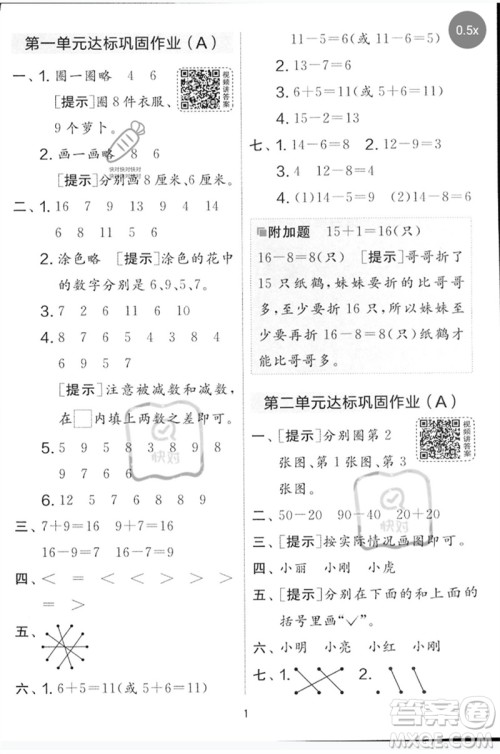 0.5x
第一单元达标巩固作业(A)
一、1. 圈一圈略 4 6
[提示]圈8件衣服、
9个萝卜。
2. 画一画略 8 6
[提示]分别画8厘米、6厘米。
视频讲答案
快对快对快对
二、1. 16 7 9 13 9 4 14
6 8 6 7
2. 涂色略 [提示]涂色的花中
的数字分别是6、9、5、7。
3. 7 7 8 9 6 5
4. 8 13 15 14 11 8
6 9 5 7
[提示]注意被减数和减数,
在□内填上两数之和即可。
5. 5 9 5 8 9 8
3 6 8
6. 1 2 3 4 5 6 7 8 9
三、7+9=16 9+7=16
16-9=7 16-7=9
四、< = < < > <
> >
五、
六、1. 6+5=11(或5+6=11)
11-5=6(或11-6=5)
2. 15-7=8
3. 6+5=11(或5+6=11)
七、1. 12-8=4 13-8=5
2. 14-8=6 15-8=7
3. 16-8=8 17-8=9
4. (1)14-9=5 (2)12-8=4
附加题 15+1=16(只)
16-8=8(只) [提示]哥哥折了
15只纸鹤,妹妹要折的比哥哥
多,所以,妹妹再折8只纸鹤,一
共有8+8=16(只)纸鹤,就比哥
哥多。
第二单元达标巩固作业(A)
一、[提示]分别圈第2
张图、第1张图、第3
张图。
视频讲答案
二、50-20 90-40 80-20
三、[提示]按实际情况画图即可。
四、小丽 小刚 小虎
五、[提示]分别在下面的和上面的
括号里画“✓”。
六、小明 小亮 小红 小刚
七、1. 2.
快对
快对
1
答案圈
MXQE.COM